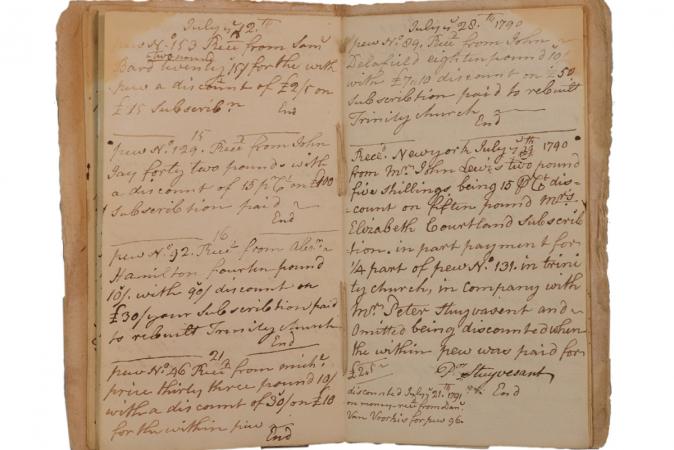 July y 12.th
pew No. 153 Recd from Sam
two pound
Bard twenty 15/ for the with
pew a discount of £2/5 on
£15 Subscribn
End
15
pew No. 129. Recd from John
Jay forty two pounds with
a discount of 15 p Ct on £100
Subscribtion paid
End
16
pew No. 92. Recd from Alexr
Hamilton fourten pound
10/. with 90/ discount on
£30/ your Subscribtion paid
to rebuilt Trinity Church
End
21
pew No. 46 Recd from mich.l
price thirty three pound 10/
with a discount of 30/ on £10
for the within pew
End
July y 28.th 1790
pew No. 89. Recd from John
Delafield eighten pound 10/
with £7.10 discount on £50.
Subscribtion paid to rebuilt
Trinity church
End
Recd. Newyork July 1790
from Mr. John Lewis two pound
five shillings being 15 P Ct dis-
count on fiften pound Mrs
Elizabeth Courtland Subscrib
tion. in part payment for
1/4 part of pew No. 131. in trini
ty church, in Company with
Mr. Peter Stuyvesent and
Omitted being discounted when
the within pew was paid for
£2.5
Pr Stuyvesant
discounted July y 21.th 1791
End
on money recd from Danl.
Van Voorhis for pew 96.